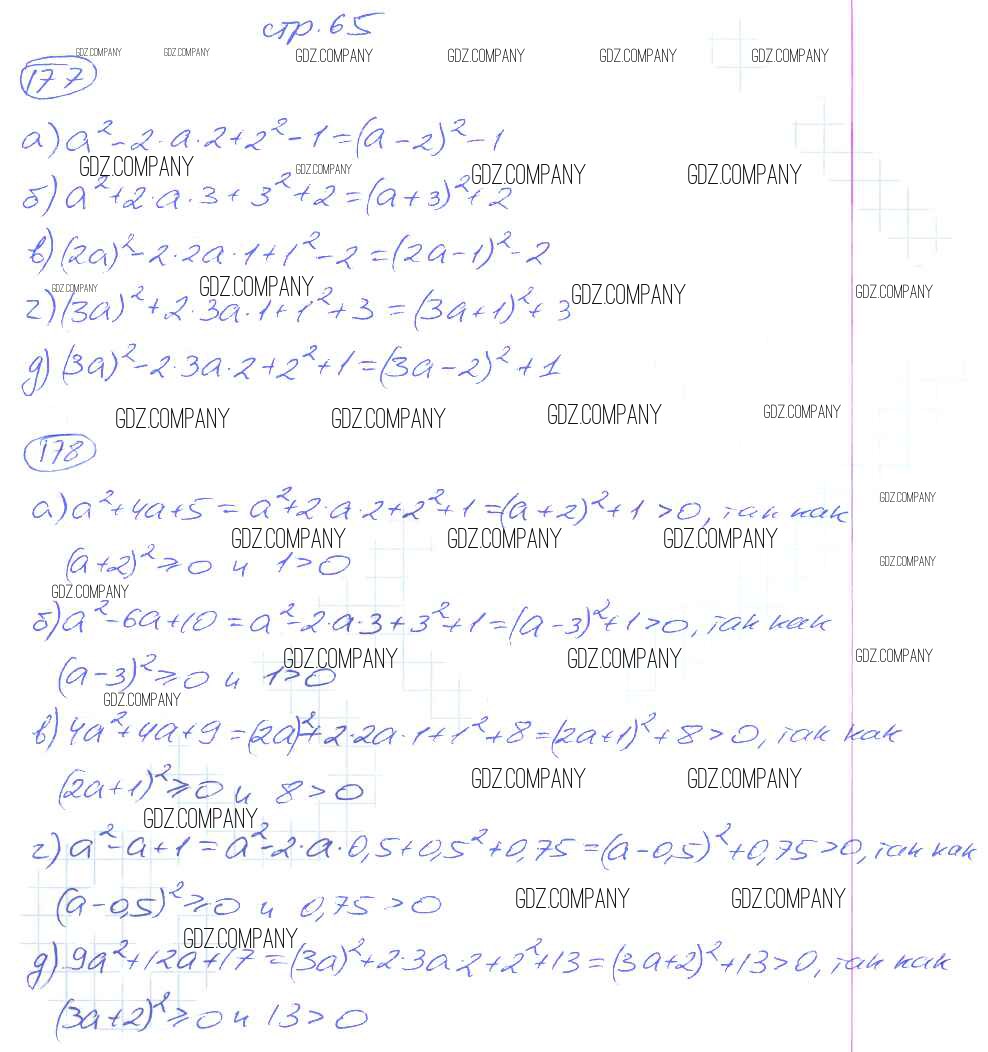 стр. 65
GDZ.COMPANY GDZ.COMPANY GDZ.COMPANY GDZ.COMPANY GDZ.COMPANY GDZ.COMPANY
177
а) a² - 2·a·2 + 2² - 1 = (a - 2)² - 1
GDZ.COMPANY GDZ.COMPANY GDZ.COMPANY GDZ.COMPANY
б) a² + 2·a·3 + 3² + 2 = (a + 3)² + 2
в) (2a)² - 2·2a·1 + 1² - 2 = (2a - 1)² - 2
GDZ.COMPANY GDZ.COMPANY GDZ.COMPANY GDZ.COMPANY
г) (3a)² + 2·3a·1 + 1² + 3 = (3a + 1)² + 3
д) (3a)² - 2·3a·2 + 2² + 1 = (3a - 2)² + 1
GDZ.COMPANY GDZ.COMPANY GDZ.COMPANY GDZ.COMPANY
178
а) a² + 4a + 5 = a² + 2·a·2 + 2² + 1 = (a + 2)² + 1 > 0, так как
GDZ.COMPANY
GDZ.COMPANY GDZ.COMPANY GDZ.COMPANY
(a + 2)² ⩾ 0 и 1 > 0
GDZ.COMPANY
GDZ.COMPANY
б) a² - 6a + 10 = a² - 2·a·3 + 3² + 1 = (a - 3)² + 1 > 0, так как
GDZ.COMPANY GDZ.COMPANY GDZ.COMPANY
(a - 3)² ⩾ 0 и 1 > 0
GDZ.COMPANY
в) 4a² + 4a + 9 = (2a)² + 2·2a·1 + 1² + 8 = (2a + 1)² + 8 > 0, так как
GDZ.COMPANY GDZ.COMPANY
(2a + 1)² ⩾ 0 и 8 > 0
GDZ.COMPANY
г) a² - a + 1 = a² - 2·a·0,5 + 0,5² + 0,75 = (a - 0,5)² + 0,75 > 0, так как
(a - 0,5)² ⩾ 0 и 0,75 > 0
GDZ.COMPANY GDZ.COMPANY
GDZ.COMPANY
д) 9a² + 12a + 17 = (3a)² + 2·3a·2 + 2² + 13 = (3a + 2)² + 13 > 0, так как
(3a + 2)² ⩾ 0 и 13 > 0